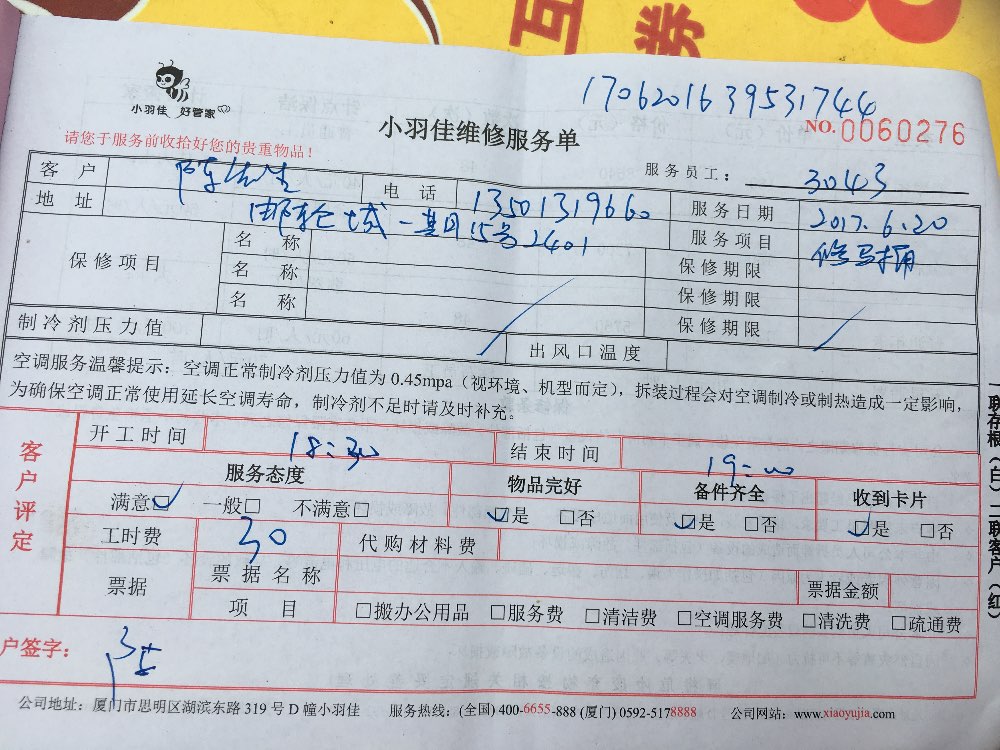 互
券
小羽佳 好管家
1706201639531744
小羽佳维修服务单
NO.0060276
请您于服务前收拾好您的贵重物品！
服务员工： 3043
客户 陈先生 电话 13501319660 服务日期 2017.6.20
地址 邮轮城一期15号2401 服务项目 修马桶
保修项目 名称 保修期限
名称 保修期限
名称 保修期限
制冷剂压力值 出风口温度
空调服务温馨提示：空调正常制冷剂压力值为 0.45mpa（视环境、机型而定），拆装过程会对空调制冷或制热造成一定影响，
为确保空调正常使用延长空调寿命，制冷剂不足时请及时补充。
客户评定
开工时间 18:30 结束时间 19:00
服务态度 物品完好 备件齐全 收到卡片
满意☑ 一般□ 不满意□ ☑是 □否 ☑是 □否 ☑是 □否
工时费 30 代购材料费
票据 票据名称 票据金额
项目 □搬办公用品 □服务费 □清洁费 □空调服务费 □清洗费 □疏通费
户签字： 陈
公司地址：厦门市思明区湖滨东路 319 号 D 幢小羽佳 服务热线：(全国) 400-6655-888 (厦门) 0592-5178888 公司网站：www.xiaoyujia.com
一联存根（白）二联客户（红）